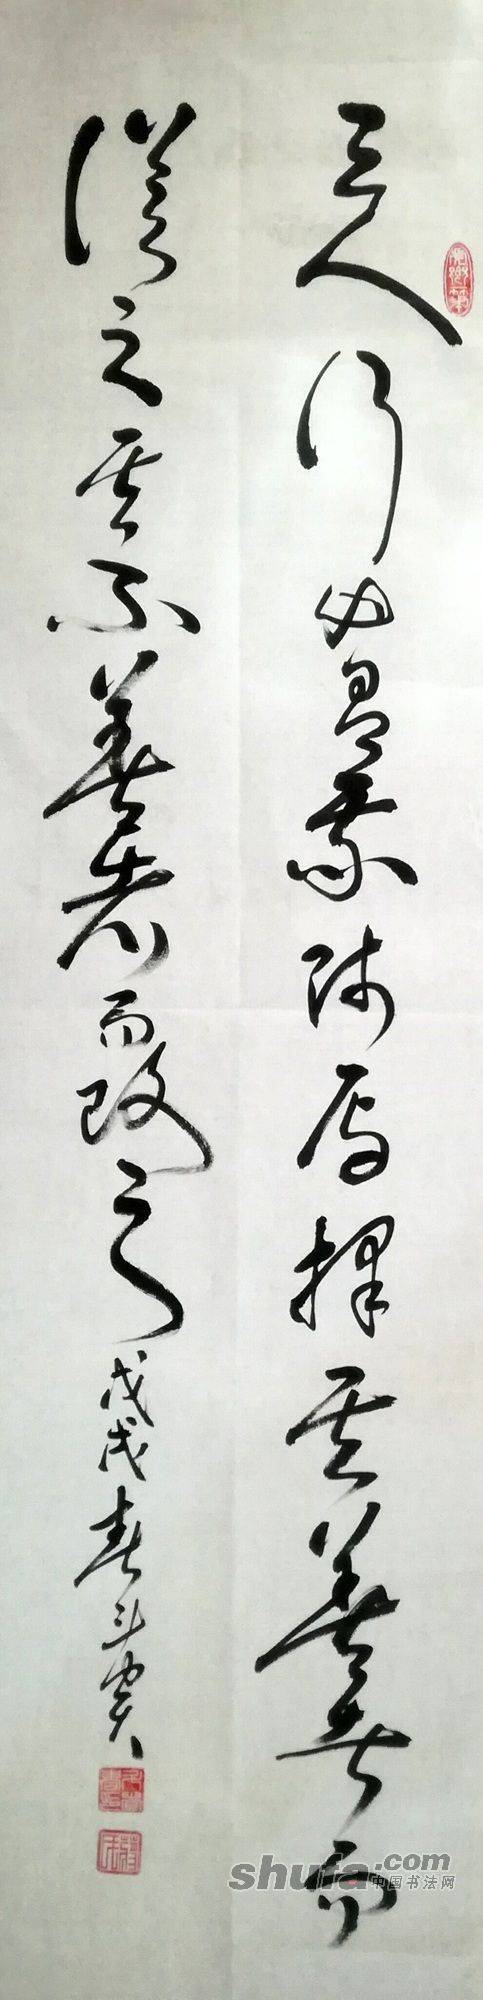 三人行必有我师焉择其善者而
从之其不善者而改之戊戌春斗
shufa.com
中国书法网